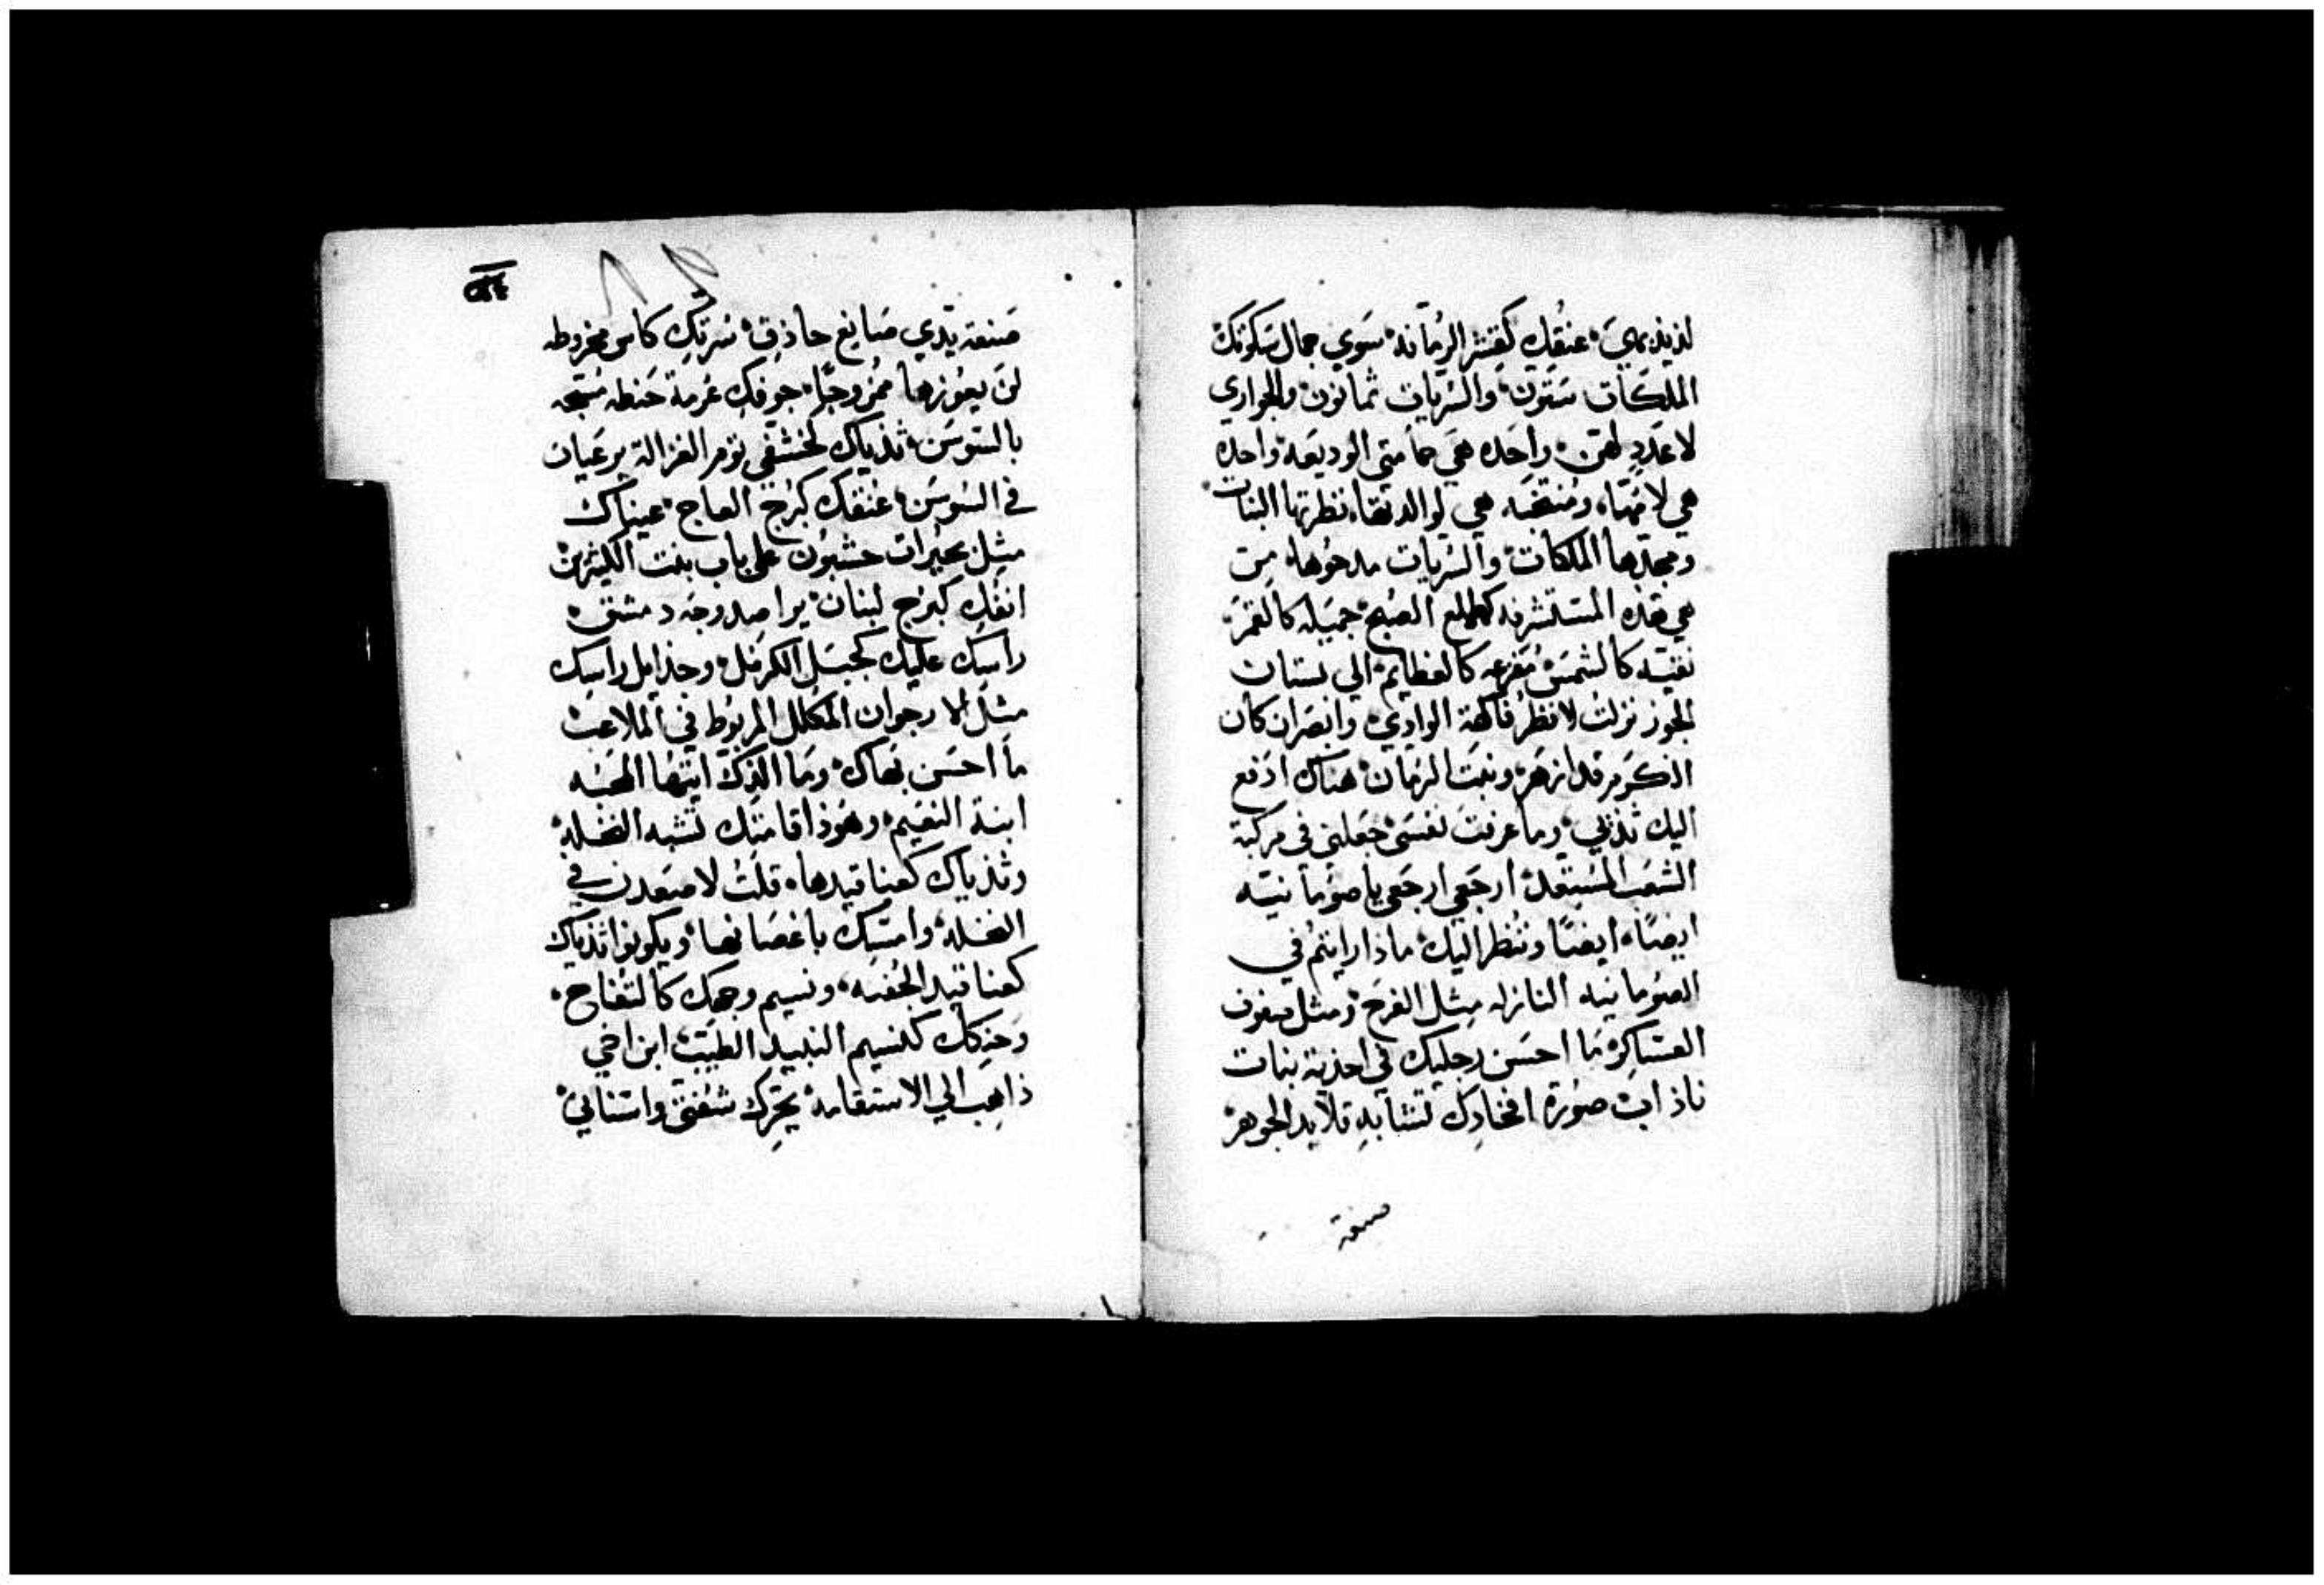 لذيذ بهي عنقك كقشر الرمانه سوي جمال سكوتك
الملكات ستون والسريات ثمانون والجواري
لا عدد لهن واحده هي حمامتي الوديعه واحده
هي لامها ومنتخبه هي لوالدتها نظرتها البنات
ومجدتها الملكات والسريات مدحوها من
هي هذه المستشرفه كطلع الصبح جميله كالقمر
نقيه كالشمس مفزعه كالعظايم الي بستان
الجوز نزلت لانظر فاكهة الوادي وابصر ان كان
الكرم قد ازهر ونبت الرمان هناك ادفع
اليك ثديي وما عرفت نفسي جعلني في مركبة
الشعب المستعد ارجعي ارجعي يا صومانيه
ايضا ايضا وننظر اليك ماذا رايتم في
الصومانيه النازله مثل الفرح ومثل صفوف
العساكر ما احسن رجليك في احذية بنات
ناداب صورة افخادك تشابه قلايد الجوهر
صنعة
صنعة يدي صانع حاذق سرتك كاس مخروطه
لن يعوزها ممزوجا جوفك عرمة حنطه مسيجه
بالسوسن ثدياك كخشفي توم الغزاله يرعيان
في السوسن عنقك كبرج العاج عيناك
مثل بحيرات حشبون على باب بنت الكثيرين
انفك كبرج لبنان يراصد وجه دمشق
راسك عليك كجبل الكرمل وجدايل راسك
مثل الارجوان المكلل المربوط في الملاعب
ما احسن بهاك وما الذك ايتها المحبه
ابنة النعيم وهوذا قامتك تشبه النخله
وثدياك كعناقيدها قلت لاصعدن في
النخله وامسك باغصانها ويكونوا ثدياك
كعناقيد الجفنه ونسيم وجهك كالتفاح
وحنكك كنسيم النبيد الطيب ابن اخي
ذاهب الي الاستقامه يحرك شفتي واسناني